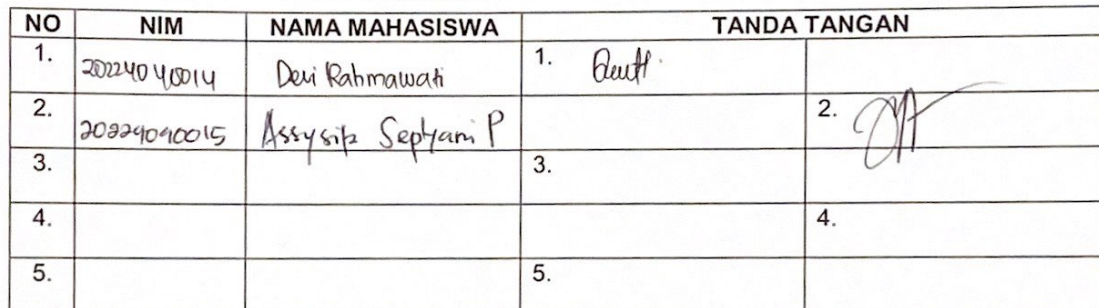 NO NIM NAMA MAHASISWA TANDA TANGAN
1. 20224040014 Devi Rahmawati 1.
2. 20224040015 Assysifa Septyani P 2.
3. 3.
4. 4.
5. 5.